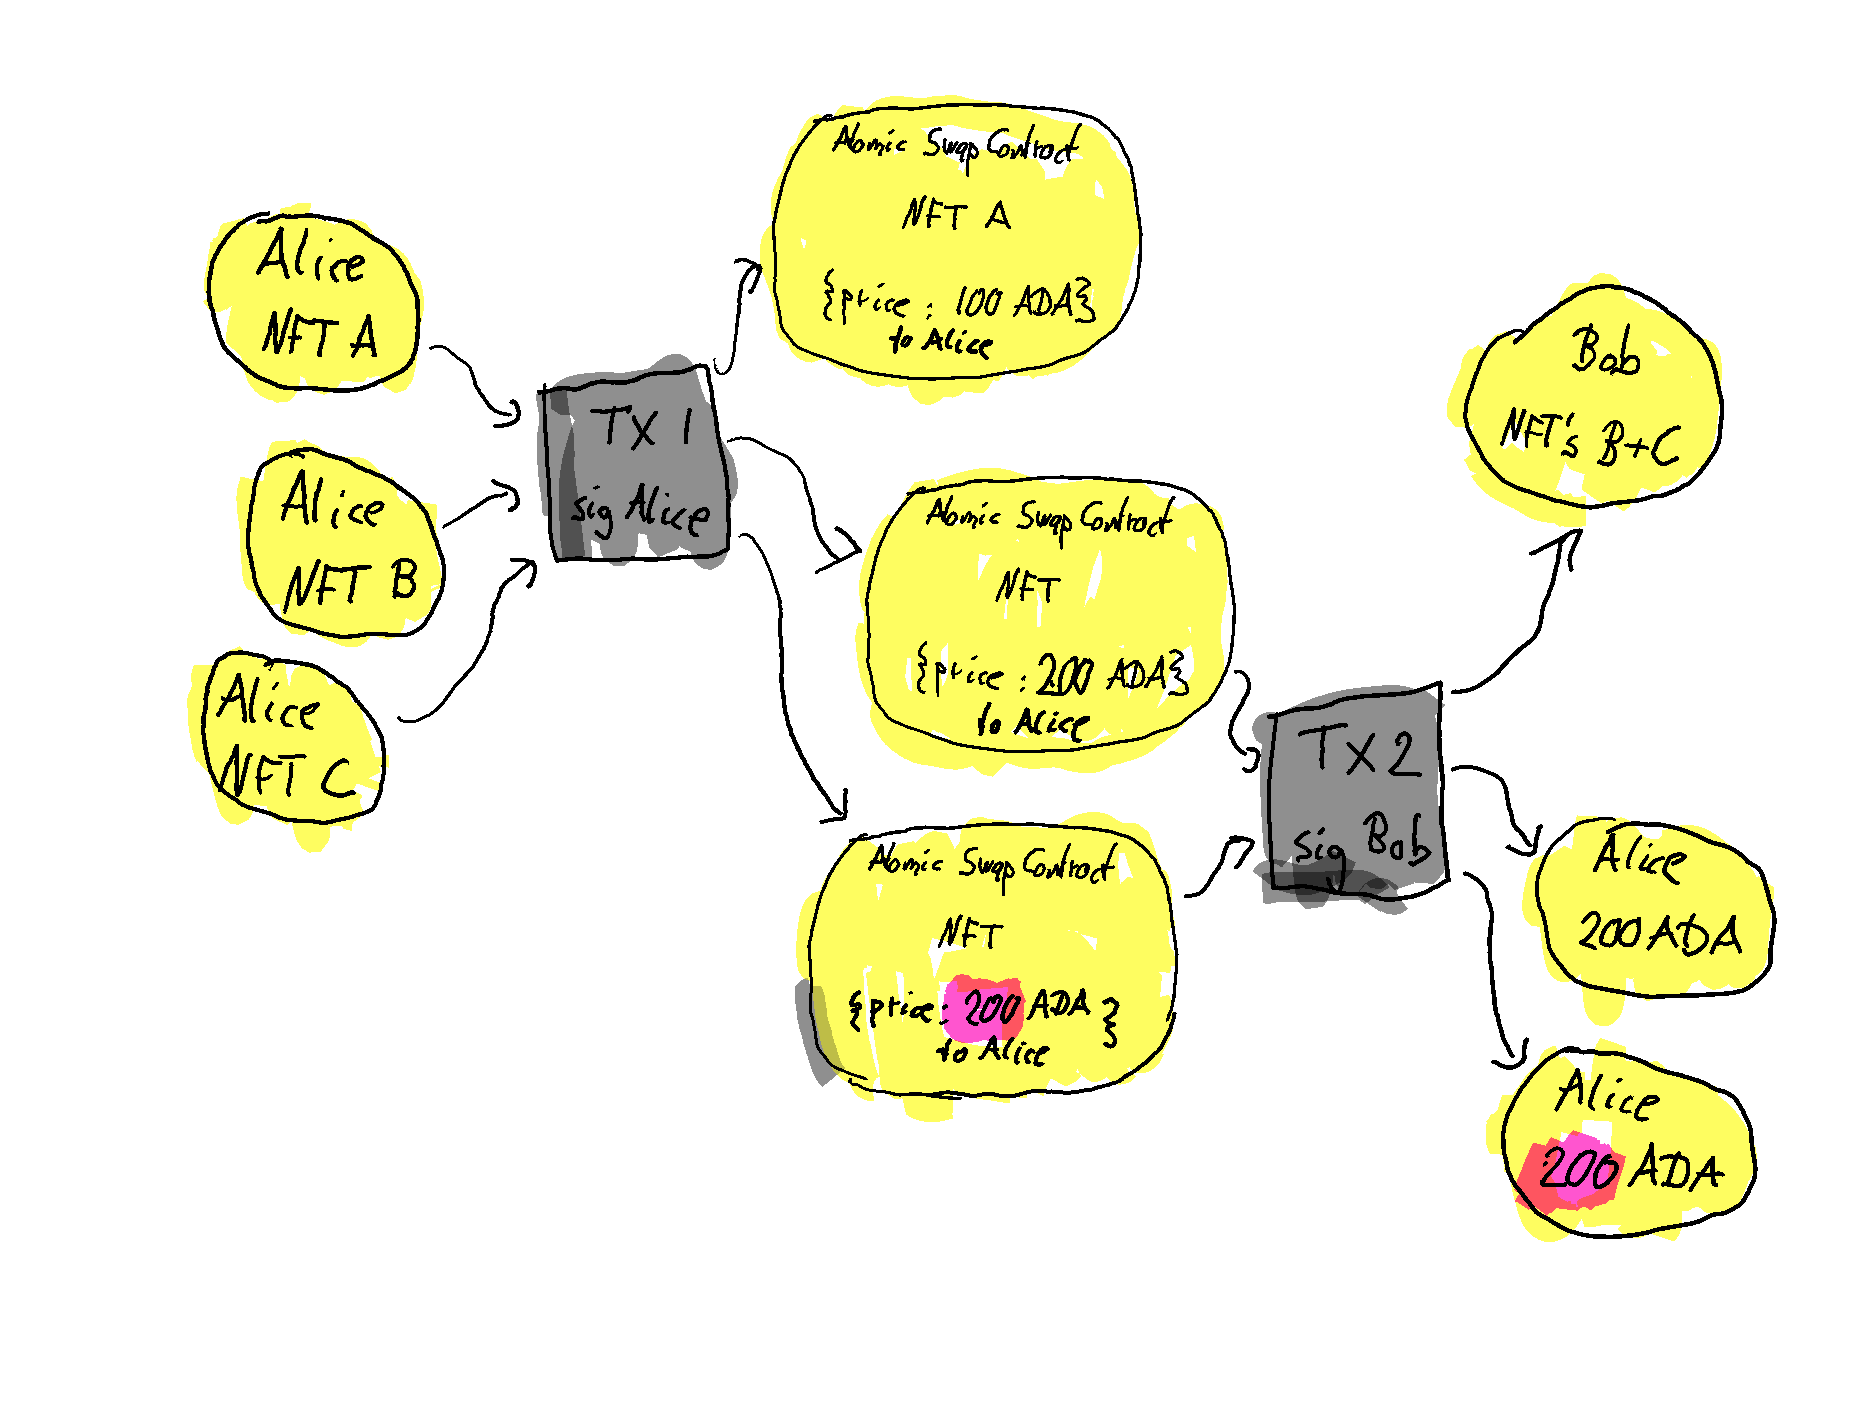 Alice
NFT A
Alice
NFT B
Alice
NFT C
TX 1
sig Alice
Atomic Swap Contract
NFT A
{price : 100 ADA}
to Alice
Atomic Swap Contract
NFT
{price : 200 ADA}
to Alice
Atomic Swap Contract
NFT
{price : 200 ADA }
to Alice
TX2
sig Bob
Bob
NFT's B+C
Alice
200 ADA
Alice
200 ADA